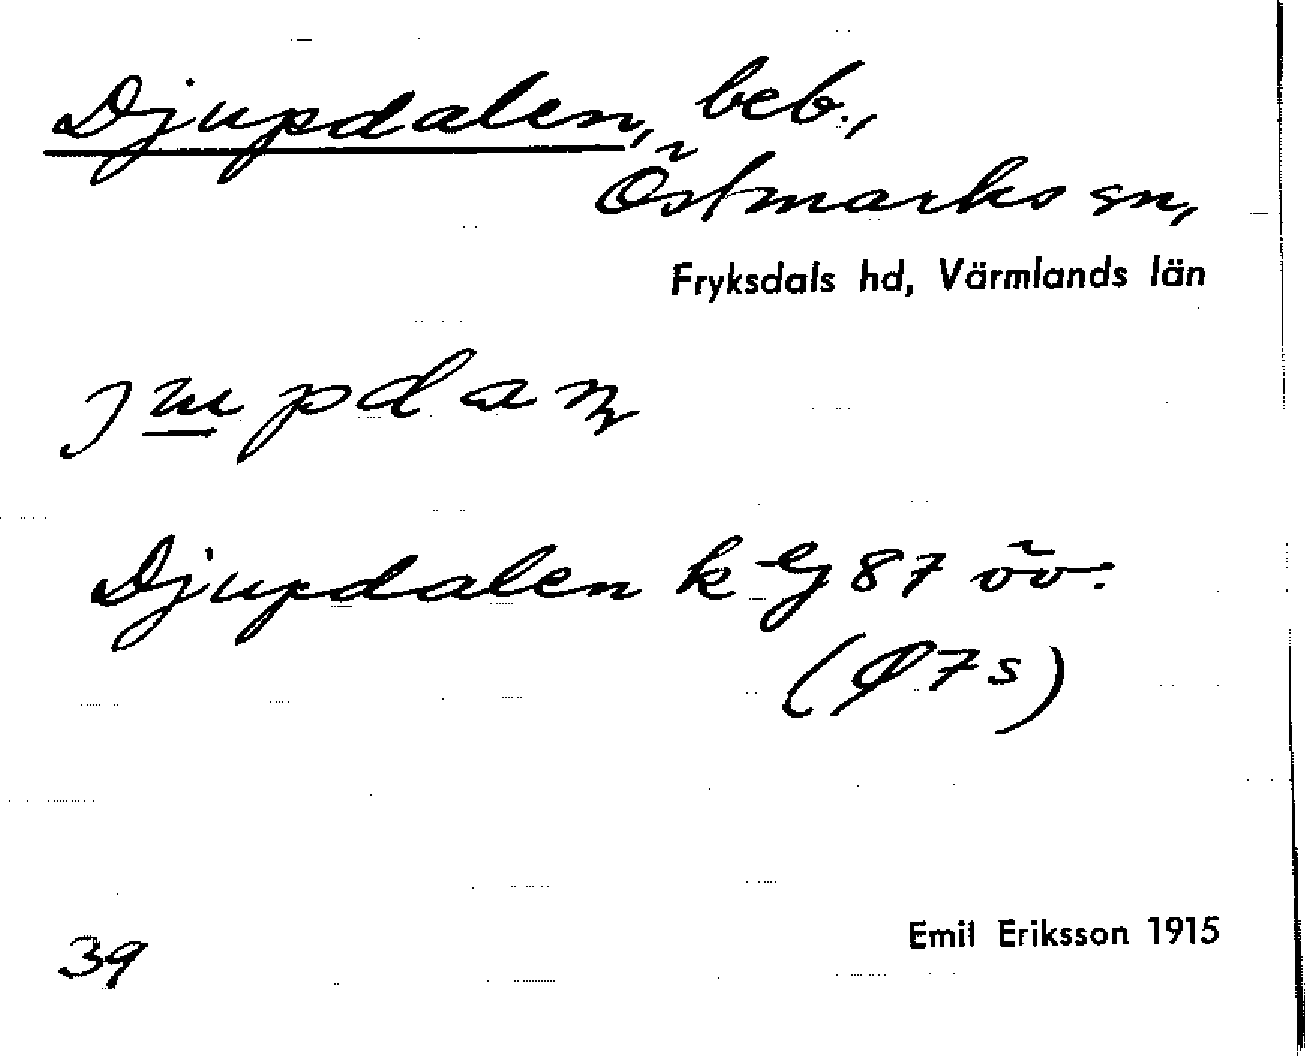 Djupdalen, beb.,
Östmarks sn,
Fryksdals hd, Värmlands län
Djupdalen k G 87 öv.
(Ø 7 s)
39
Emil Eriksson 1915